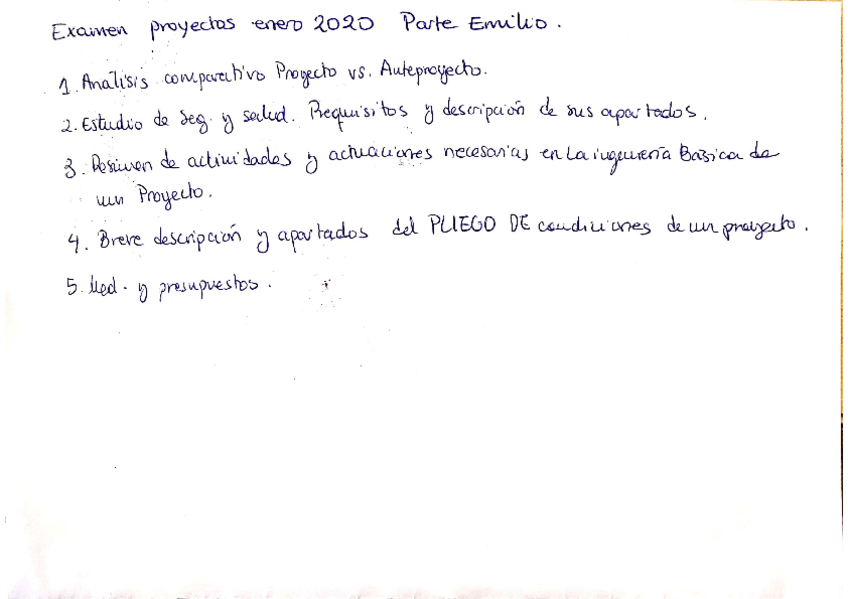 Examen proyectos enero 2020 Parte Emilio.
1. Análisis comparativo Proyecto vs. Anteproyecto.
2. Estudio de Seg. y salud. Requisitos y descripción de sus apartados.
3. Resumen de actividades y actuaciones necesarias en La ingeniería Básica de
un Proyecto.
4. Breve descripción y apartados del PLIEGO DE condiciones de un proyecto.
5. Med. y presupuestos.